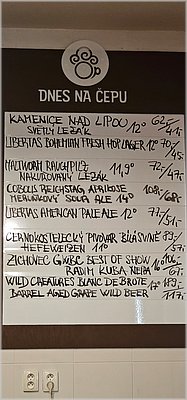 DNES NA ČEPU
KAMENICE NAD LIPOU 12° 62,-/41,-
SVĚTLÝ LEŽÁK
LIBERTAS BOHEMIAN FRESH HOP LAGER 12° 70/45,-
MALTWORM RAUCHPILZ 11,9° 72,-/47,-
NAKUŘOVANÝ LEŽÁK
COBOLIS REICHSTAG APRIKOSE 108,-/68,-
MERUŇKOVÝ SOUR ALE 14°
LIBERTAS AMERICAN PALE ALE 12° 77/51,-
ČERNOKOSTELECKÝ PIVOVAR BÍLÁ SVINĚ 89,-/57,-
HEFEWEIZEN 11°
ZICHOVEC GWBC BEST OF SHOW 16° 106,-/67,-
RADIM KUBA NEIPA
WILD CREATURES BLANC DE BROTE 17° 189,-/117,-
BARREL AGED GRAPE WILD BEER